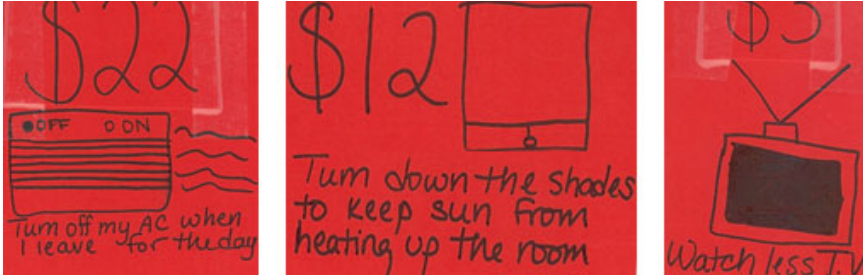 $22
OFF ON
Turn off my AC when
I leave for the day
$12
Turn down the shades
to keep sun from
heating up the room
Watch less T.V